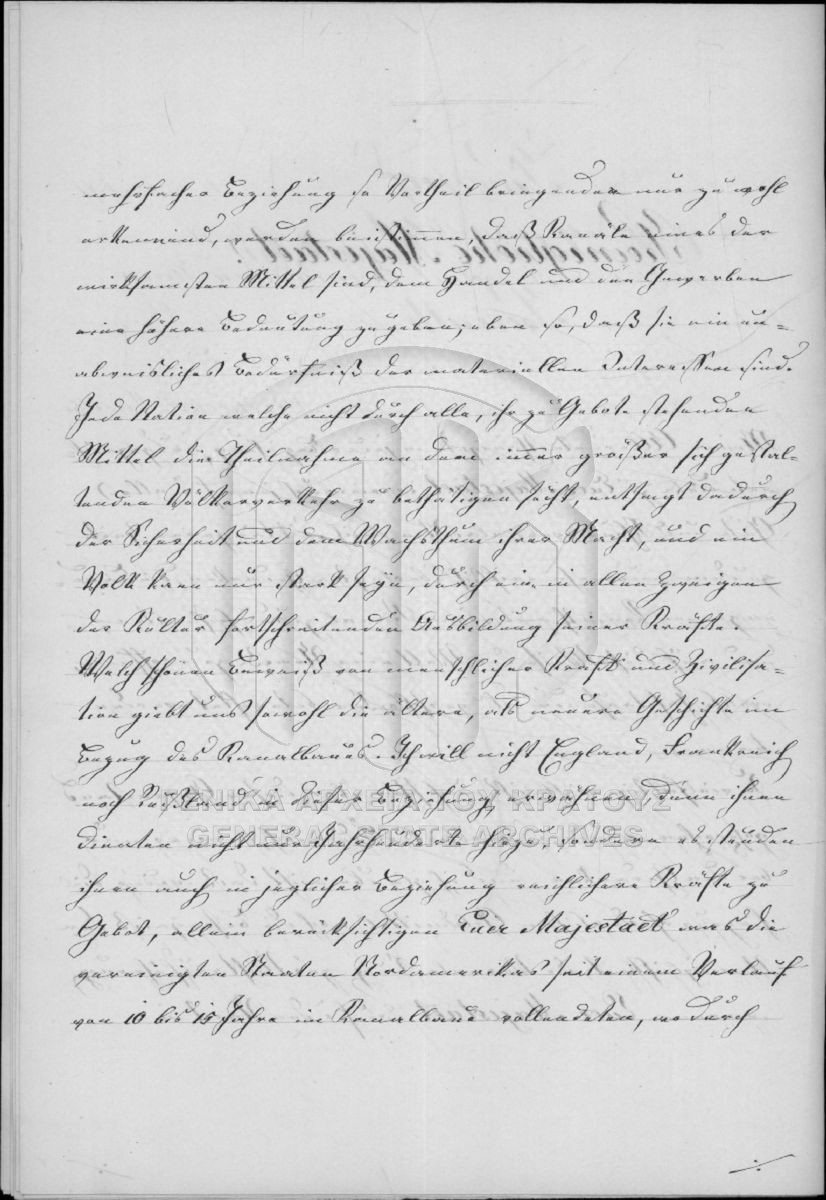 mehrfacher Beziehung so Vortheil bringenden nur zu wohl
erkennend, werden beistimmen, daß Kanäle eines der
wirksamsten Mittel sind, dem Handel und den Gewerben
eine höhere Bedeutung zu geben; eben so, daß sie ein un-
abweisliches Bedürfniß der materiellen Interessen sind.
Jede Nation welche nicht durch alle, ihr zu Gebote stehenden
Mittel die Theilnahme an dem immer größer sich gestal-
tenden Völkerverkehr zu bethätigen sucht, entsagt dadurch
der Sicherheit und dem Wachsthum ihrer Macht, und ein
Volk kann nur stark seyn, durch eine in allen Zweigen
der Kultur fortschreitenden Ausbildung seiner Kräfte.
Welch schönen Beweiß von menschlicher Kraft und Zivilisa-
tion giebt uns sowohl die ältere, als neuere Geschichte im
Bezug des Kanalbaues. Ich will nicht England, Frankreich
noch Rußland in dieser Beziehung erwähnen, denn ihnen
dienten nicht nur Jahrhunderte hiezu, sondern es stunden
ihnen auch in jeglicher Beziehung reichlichere Kräfte zu
Gebot, allein berücksichtigen Euer Majestaet was die
vereinigten Staaten Nordamerikas seit einem Verlauf
von 10 bis 15 Jahre im Kanalbaue vollendeten, wodurch
ΓΕΝΙΚΑ ΑΡΧΕΙΑ ΤΟΥ ΚΡΑΤΟΥΣ
GENERAL STATE ARCHIVES